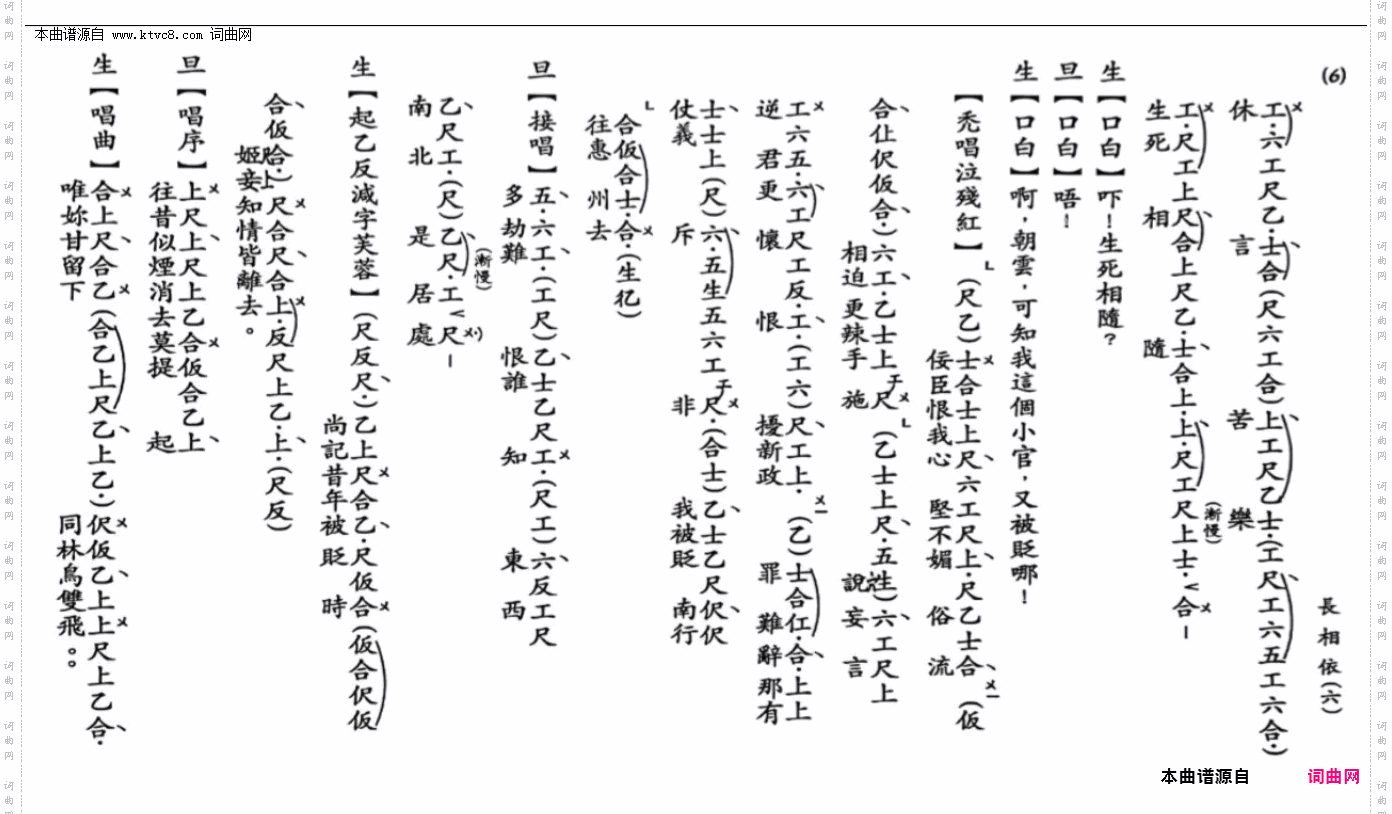 本曲谱源自 www.ktvc8.com 词曲网
(6)
長相依(六)
工·六工尺乙·士合(尺六工合)上工尺乙士·(工尺工六五工六合·)
休言苦樂
工·尺工上尺合上尺乙·士合上·上·尺工尺上士·合
(漸慢)
生死相隨
生【口白】吓!生死相隨?
旦【口白】唔!
生【口白】啊,朝雲,可知我這個小官,又被貶哪!
【禿唱泣殘紅】(尺乙)士合士上尺六工尺上·尺乙士合(仮
佞臣恨我心堅不媚俗流
合仩伬仮合·)六工·乙士上尺(乙士上尺·五生)六工尺上
相迫更辣手施說妄言
工六五·六工尺工反·工·(工六)尺工上·(乙)士合仜·合·上上
逆君更懷恨擾新政罪難辭那有
士士上(尺)六·五生五六工尺·(合士)乙士乙尺伬伬
仗義斥非我被貶南行
合仮合士·合·(生犵)
往惠州去
旦【接唱】五·六工·(工尺)乙士乙尺工·(尺工)六反工尺
多劫難恨誰知東西
乙尺工·(尺)乙尺·工尺
(漸慢)
南北是居處
生【起乙反減字芙蓉】(尺反尺·)乙上尺合乙·尺仮合(仮合伬仮
尚記昔年被貶時
合仮合·)尺合尺合上·反尺上乙·上·(尺反)
姬妾知情皆離去。
旦【唱序】上尺上尺上乙合仮合乙上
往昔似煙消去莫提起
生【唱曲】合上尺合乙(合乙上尺乙上乙·)伬仮乙上上尺上乙合·
唯妳甘留下同林鳥雙飛。。
本曲谱源自 词曲网